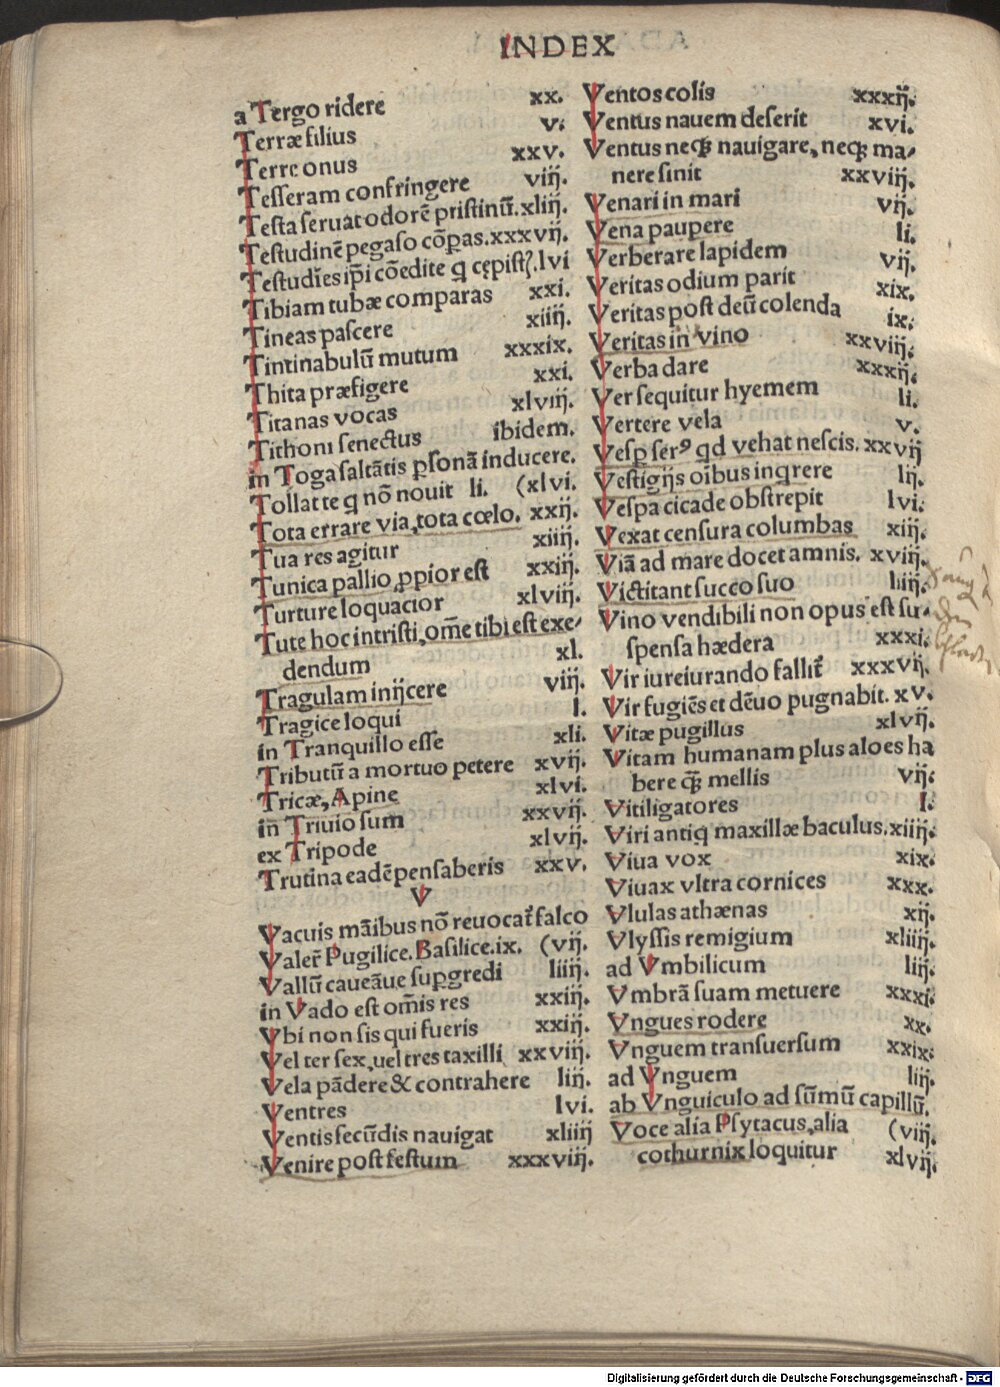 INDEX
a Tergo ridere xx.
Terræ filius v.
Terre onus xxv.
Tesseram confringere viij.
Testa seruat odorē pristinū. xliij.
Testudinē pegaso cōparas. xxxvij.
Testudīes ip̄i cōedite q cępist?. lvi
Tibiam tubæ comparas xxi.
Tineas pascere xiiij.
Tintinabulū mutum xxxix.
Thita præfigere xxi.
Titanas vocas xlviij.
Tithoni senectus ibidem.
in Toga saltātis ꝑsonā inducere.
Tollat te q nō nouit li. (xlvi.
Tota errare via, tota cœlo. xxij.
Tua res agitur xiiij.
Tunica pallio ꝓpior est xxiij.
Turture loquacior xlviij.
Tute hoc intristi, om̄e tibi est exe-
dendum xl.
Tragulam inijcere viij.
Tragice loqui l.
in Tranquillo esse xli.
Tributū a mortuo petere xvij.
Tricæ, Apine xlvi.
in Triuio sum xxvij.
ex Tripode xlvij.
Trutina eadē pensaberis xxv.
V
Vacuis māibus nō reuocat̄ falco
Valer̄ Pugilice. Basilice. ix. (vij.
Vallū caueāue supgredi liiij.
in Vado est om̄is res xxiij.
Vbi non sis qui fueris xxiij.
Vel ter sex, uel tres taxilli xxviij.
Vela pādere & contrahere liij.
Ventres lvi.
Ventis secūdis nauigat xliiij
Venire post festum xxxviij.
Ventos colis xxxij.
Ventus nauem deserit xvi.
Ventus neqȝ nauigare, neqȝ ma-
nere sinit xxviij.
Venari in mari vij.
Vena paupere li.
Verberare lapidem vij.
Veritas odium parit xix.
Veritas post deū colenda ix.
Veritas in vino xxviij.
Verba dare xxxij.
Ver sequitur hyemem li.
Vertere vela v.
Vesp ser⁹ qd vehat nescis. xxvij
Vestigijs oībus inqrere lij.
Vespa cicade obstrepit lvi.
Vexat censura columbas xiij.
Viā ad mare docet amnis. xviij.
Victitant succo suo liij.
Vino vendibili non opus est su-
spensa hædera xxxi.
Vir iureiurando fallit̄ xxxvij.
Vir fugiēs et dēuo pugnabit. xv.
Vitæ pugillus xlvij.
Vitam humanam plus aloes ha
bere q̄ȝ mellis vij.
Vitiligatores l.
Viri antiq maxillæ baculus. xiiij.
Viua vox xix.
Viuax vltra cornices xxx.
Vlulas athænas xij.
Vlyssis remigium xliiij.
ad Vmbilicum liij.
Vmbrā suam metuere xxxi.
Vngues rodere xx.
Vnguem transuersum xxix.
ad Vnguem liij.
ab Vnguiculo ad sūmū capillū.
Voce alia Psytacus, alia (viij.
cothurnix loquitur xlvij.
Digitalisierung gefördert durch die Deutsche Forschungsgemeinschaft - DFG